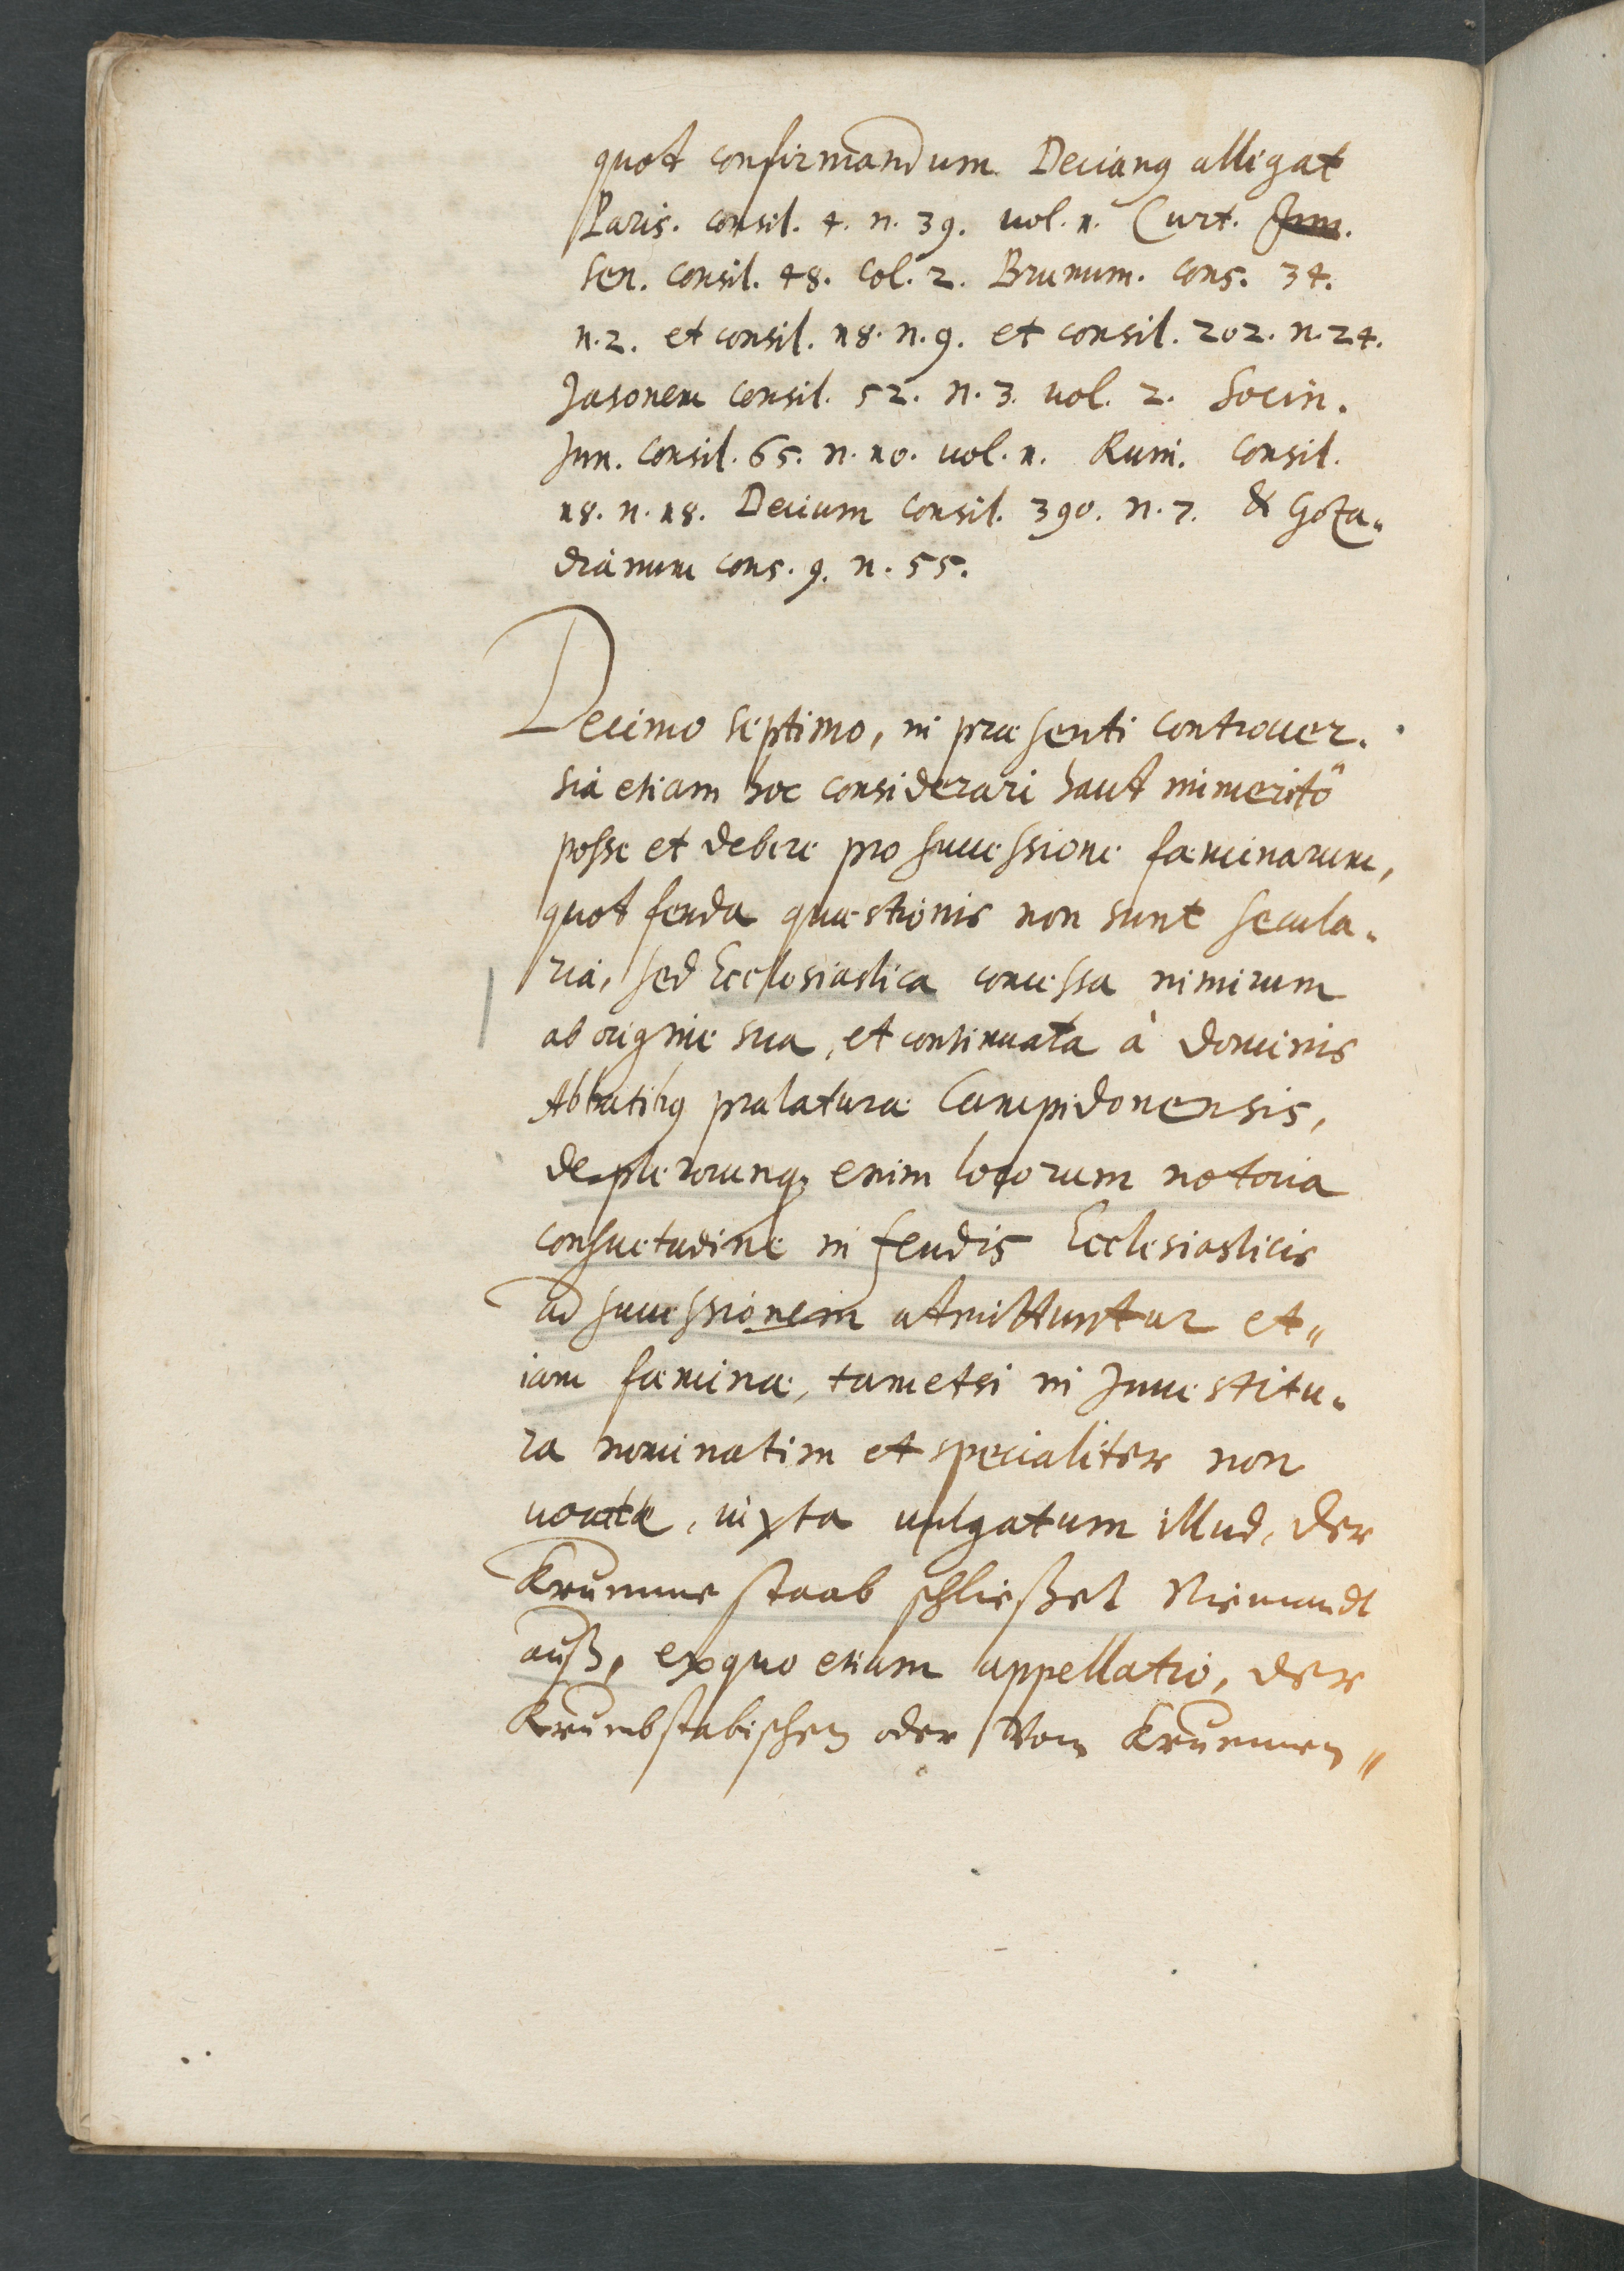 quot confirmandum Decianꝰ allegat
Paris. consil. 4. n. 39. vol. 1. Curt. Jun.
Sen. consil. 48. col. 2. Brunum. cons. 34.
n. 2. et consil. 18. n. 9. et consil. 202. n. 24.
Jasonem consil. 52. n. 3. vol. 2. Socin.
Jun. consil. 65. n. 10. vol. 1. Ruin. consil.
18. n. 18. Decium consil. 390. n. 7. & Goza„
dianum cons. 9. n. 55.
Decimo septimo, in præsenti controuer.
sia etiam hoc considerari haut immeritò
posse et debere pro successione fæminarum,
quot feuda quæstionis non sunt secula„
ria, sed Ecclesiastica concessa nimirum
ab origine sua, et continuata à Dominis
Abbatibꝰ prælaturæ Campidonensis,
de plerorunq; enim locorum notoria
consuetudine in feudis Ecclesiasticis
ad successionem atmittuntur et„
iam fæminæ, tametsi in Inuestitu„
ra nominatim et specialiter non
uocatæ, iuxta uulgatum illud, der
Krumme staab schließet Niemandt
auß, ex quo etiam appellatio, der
Krumbstabischen oder Vom Krummen„